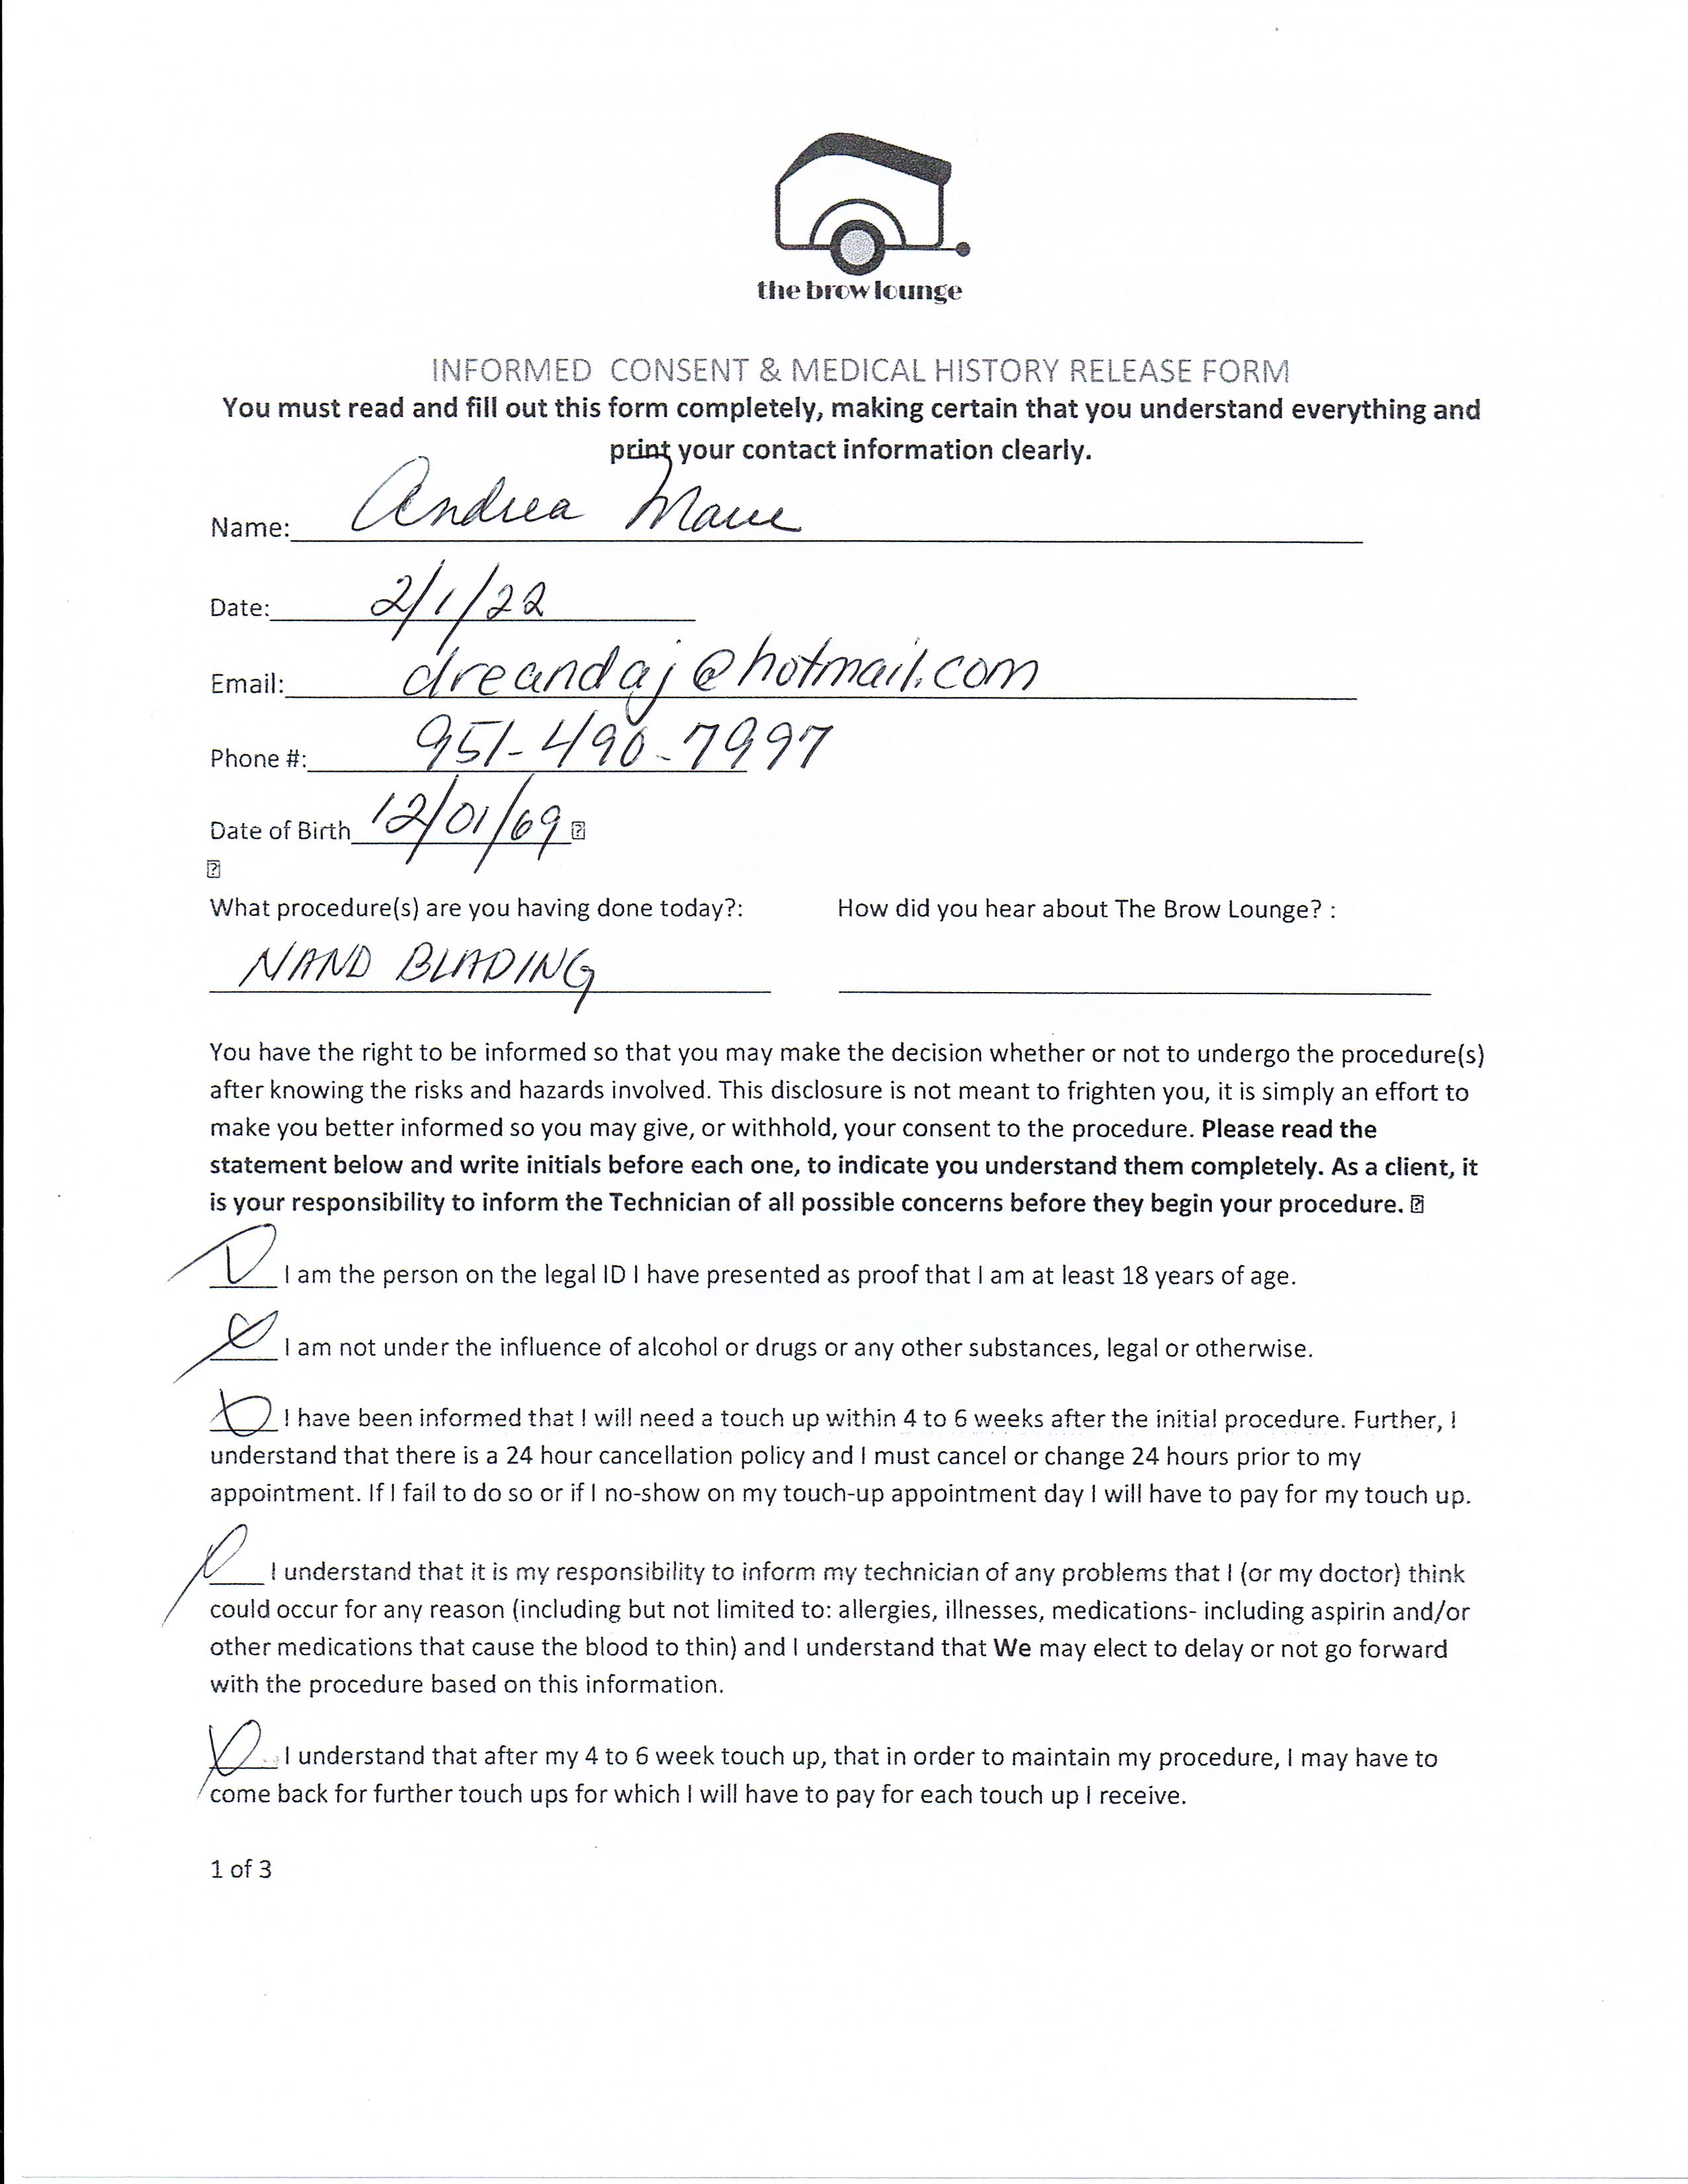 the brow lounge
INFORMED CONSENT & MEDICAL HISTORY RELEASE FORM
You must read and fill out this form completely, making certain that you understand everything and
print your contact information clearly.
Name: Andrea
Date: 2/1/22
Email: dreandaj@hotmail.com
Phone #: 951-490-7997
Date of Birth 12/01/69
What procedure(s) are you having done today?: How did you hear about The Brow Lounge? :
NAND BLADING
You have the right to be informed so that you may make the decision whether or not to undergo the procedure(s)
after knowing the risks and hazards involved. This disclosure is not meant to frighten you, it is simply an effort to
make you better informed so you may give, or withhold, your consent to the procedure. Please read the
statement below and write initials before each one, to indicate you understand them completely. As a client, it
is your responsibility to inform the Technician of all possible concerns before they begin your procedure.
I am the person on the legal ID I have presented as proof that I am at least 18 years of age.
I am not under the influence of alcohol or drugs or any other substances, legal or otherwise.
I have been informed that I will need a touch up within 4 to 6 weeks after the initial procedure. Further, I
understand that there is a 24 hour cancellation policy and I must cancel or change 24 hours prior to my
appointment. If I fail to do so or if I no-show on my touch-up appointment day I will have to pay for my touch up.
I understand that it is my responsibility to inform my technician of any problems that I (or my doctor) think
could occur for any reason (including but not limited to: allergies, illnesses, medications- including aspirin and/or
other medications that cause the blood to thin) and I understand that We may elect to delay or not go forward
with the procedure based on this information.
I understand that after my 4 to 6 week touch up, that in order to maintain my procedure, I may have to
come back for further touch ups for which I will have to pay for each touch up I receive.
1 of 3